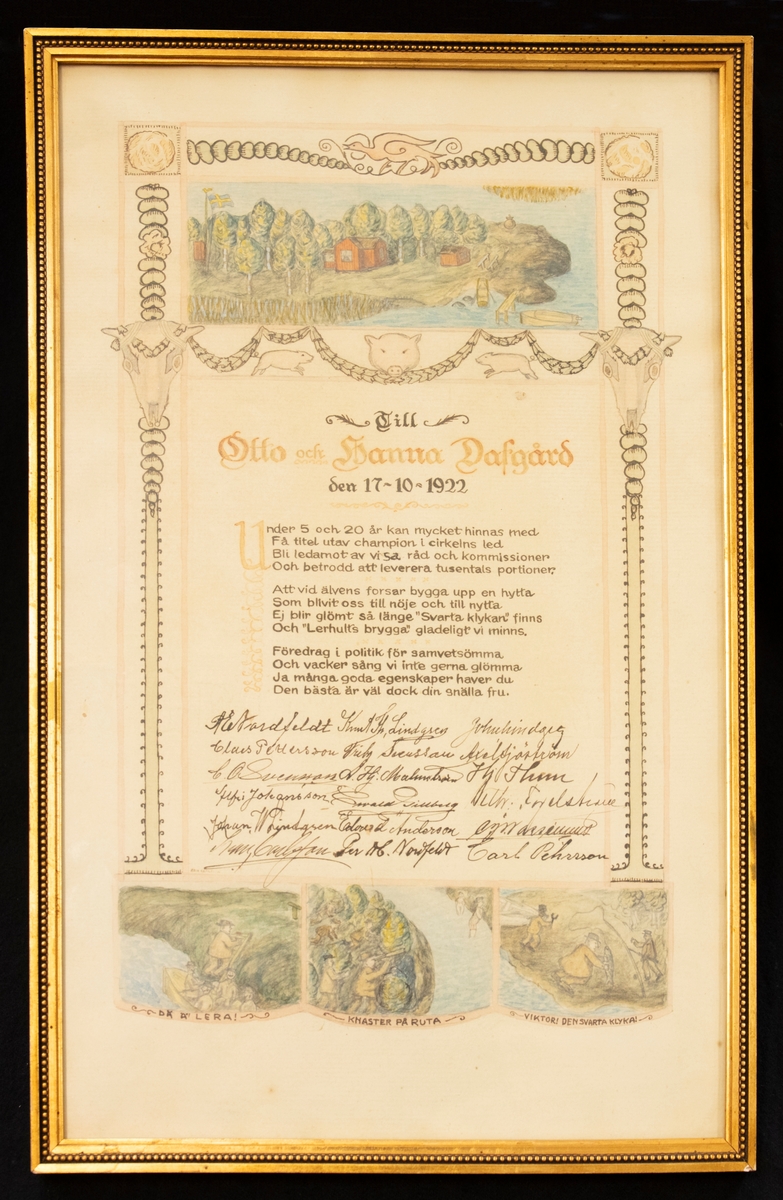 Till
Otto och Hanna Dafgård
den 17-10-1922
Under 5 och 20 år kan mycket hinnas med
Få titel utav champion i cirkelns led
Bli ledamot av vi sa råd och kommissioner
Och betrodd att leverera tusentals portioner.
Att vid älvens forsar bygga upp en hytta
Som blivit oss till nöje och till nytta
Ej blir glömt så länge "Svarta klykan" finns
Och "Lerhults brygga" gladeligt vi minns.
Föredrag i politik för samvetsömma
Och vacker sång vi inte gerna glömma
Ja många goda egenskaper haver du
Den bästa är väl dock din snälla fru.
A E Nordfeldt Knut Lindgren John Lindgren
Claes Pettersson Axel Sjöström
C A Svensson Malmström
Johansson Ewald
Johan Lindgren Edvard Anderson
Per Nordfeldt Carl Pehrsson
DÄ Ä' LERA!
KNASTER PÅ RUTA
VIKTOR! DEN SVARTA KLYKA!